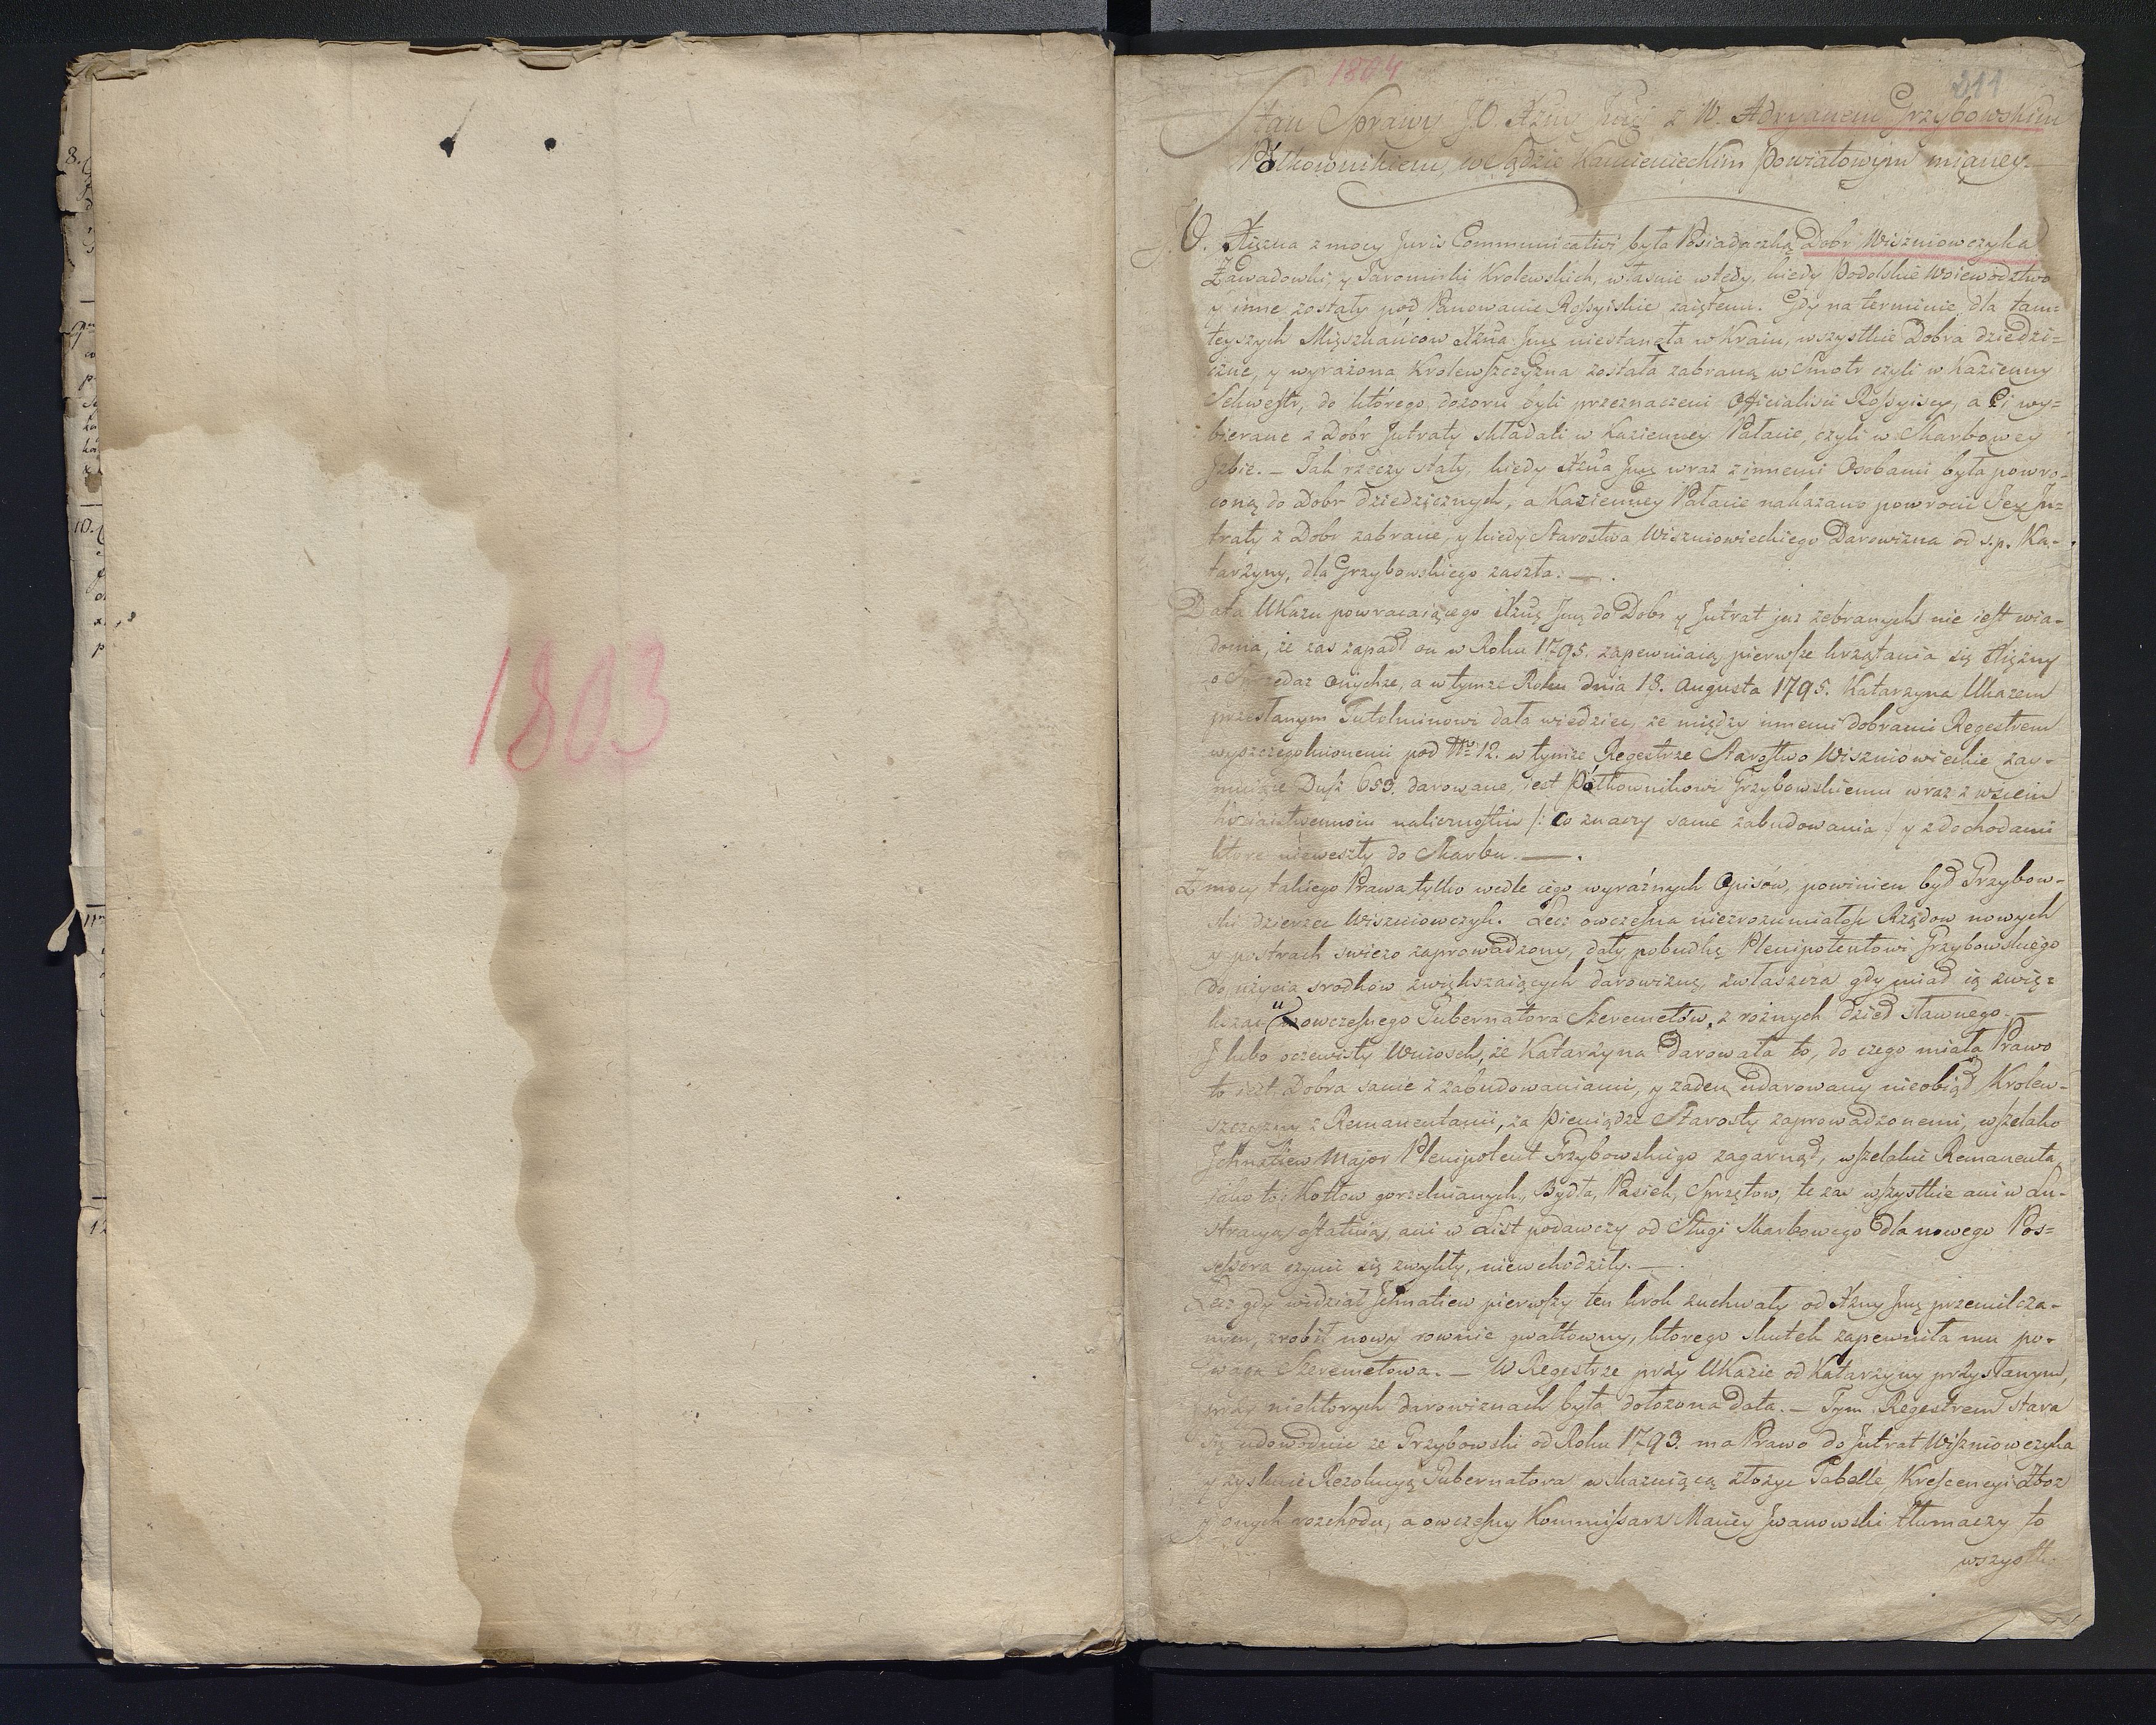 1803
1804
211
Stan Sprawy J.O. Xżny Jmci z W. Adryanem Grzybowskim
Połkownikiem, w Sądzie Kamienieckim powiatowym mianey.
J.O. Xiężna z mocy Juris Communicativi była Posiadaczką Dobr Wiszniowczyka
Zawadowki, y Jaromirki Krolewskich, właśnie wtedy, kiedy Podolskie Woiewodztwo
y inne zostały pod Panowanie Rossyiskie zaiętemi. Gdy na terminie dla tam=
teyszych Mięszkańcow Xżna Jmć niestanęła w Kraiu, wszystkie Dobra dziedzi=
czne, y wyrażona Krolewszczyzna została zabraną w Smotr czyli w Kazienny
Sekwestr, do którego dozoru byli przeznaczeni Officialisci Rossyiscy, a Ci wy=
bierane z Dobr Jntraty składali w Kazienney Pałacie, czyli w Skarbowey
Jzbie. — Tak rzeczy stały, kiedy Xżna Jmć wraz z innemi Osobami była powro=
coną do Dobr dziedzicznych, a Kazienney Pałacie nakazano powrocić Jey Jn=
traty z Dobr zabrane, y kiedy Starostwa Wiszniowieckiego Darowizna od s.p. Ka=
tarzyny, dla Grzybowskiego zaszła. —
Data Ukazu powracaiącego Xżnę Jmć do Dobr y Jntrat już zebranych nie iest wia=
doma, że zas zapadł on w Roku 1795. zapewniaią pierwsze krzątania się Xiężny
o Sprzedaż onychże, a w tymże Roku dnia 18. Augusta 1795. Katarzyna Ukazem
przesłanym Tutolminowi dała wiedzieć, że między innemi dobrami Regestrem
wyszczegolnionemi pod Nr 12. w tymże Regestrze Starostwo Wiszniowieckie zay=
muiące Dusz 653. darowane iest Połkownikowi Grzybowskiemu wraz z wsiem
hoziaistwennoiu naliczonostiu /: co znaczy same zabudowania :/ y z dochodami
ktore nieweszły do Skarbu. —
Z mocy takiego Prawa, tylko wedle iego wyraźnych Opisów, powinien był Grzybow=
ski dzierżeć Wiszniowczyk. Lecz owczesna niezrozumiałość Rządow nowych
y postrach swiezo zaprowadzony, dały pobudkę Plenipotentowi Grzybowskiego
do użycia srodkow zwiększaiących darowiznę, zwłaszcza gdy miał ią zwię=
kszać u owczesnego Gubernatora Szeremetów, z rożnych dzieł sławnego. —
J lubo oczewisty Wniosek, że Katarzyna Darowała to, do czego miała Prawo
to iest Dobra same z zabudowaniami, y żaden udarowany nieobiął Krolew=
szczyzny z Remanentami, za pieniądze Starosty zaprowadzonemi, wszelako
Jehnatiew Major Plenipotent Grzybowskiego zagarnął, wszelkie Remanenta
jako to: Kotłow gorzelnianych, Bydła, Pasiek, Sprzętow, te zas wszystkie ani w Lu=
stracyą ostatnią, ani w List podawczy od Sługi Skarbowego dla nowego Pos=
sessora czynić się zwykły, niewchodziły. —
Lecz gdy widział Jehnatiew pierwszy ten krok zuchwały od Xżny Jmć przemilcza=
nym, zrobił nowy rownie gwałtowny, ktorego skutek zapewniła mu po=
waga Szeremetowa. — W Regestrze przy Ukazie od Katarzyny przysłanym,
przy niektorych darowiznach była dołożona Data. — Tym Regestrem stara
się udowodnić że Grzybowski od Roku 1793. ma Prawo do Jntrat Wiszniowczyka
y zyskuie Rezolucyą Gubernatora wskazuiącą złożyć Tabelle Krescencyi Zboż
y onych rozchodu, a owczesny Kommissarz Maciey Jwanowski tłumaczy to
wszystko